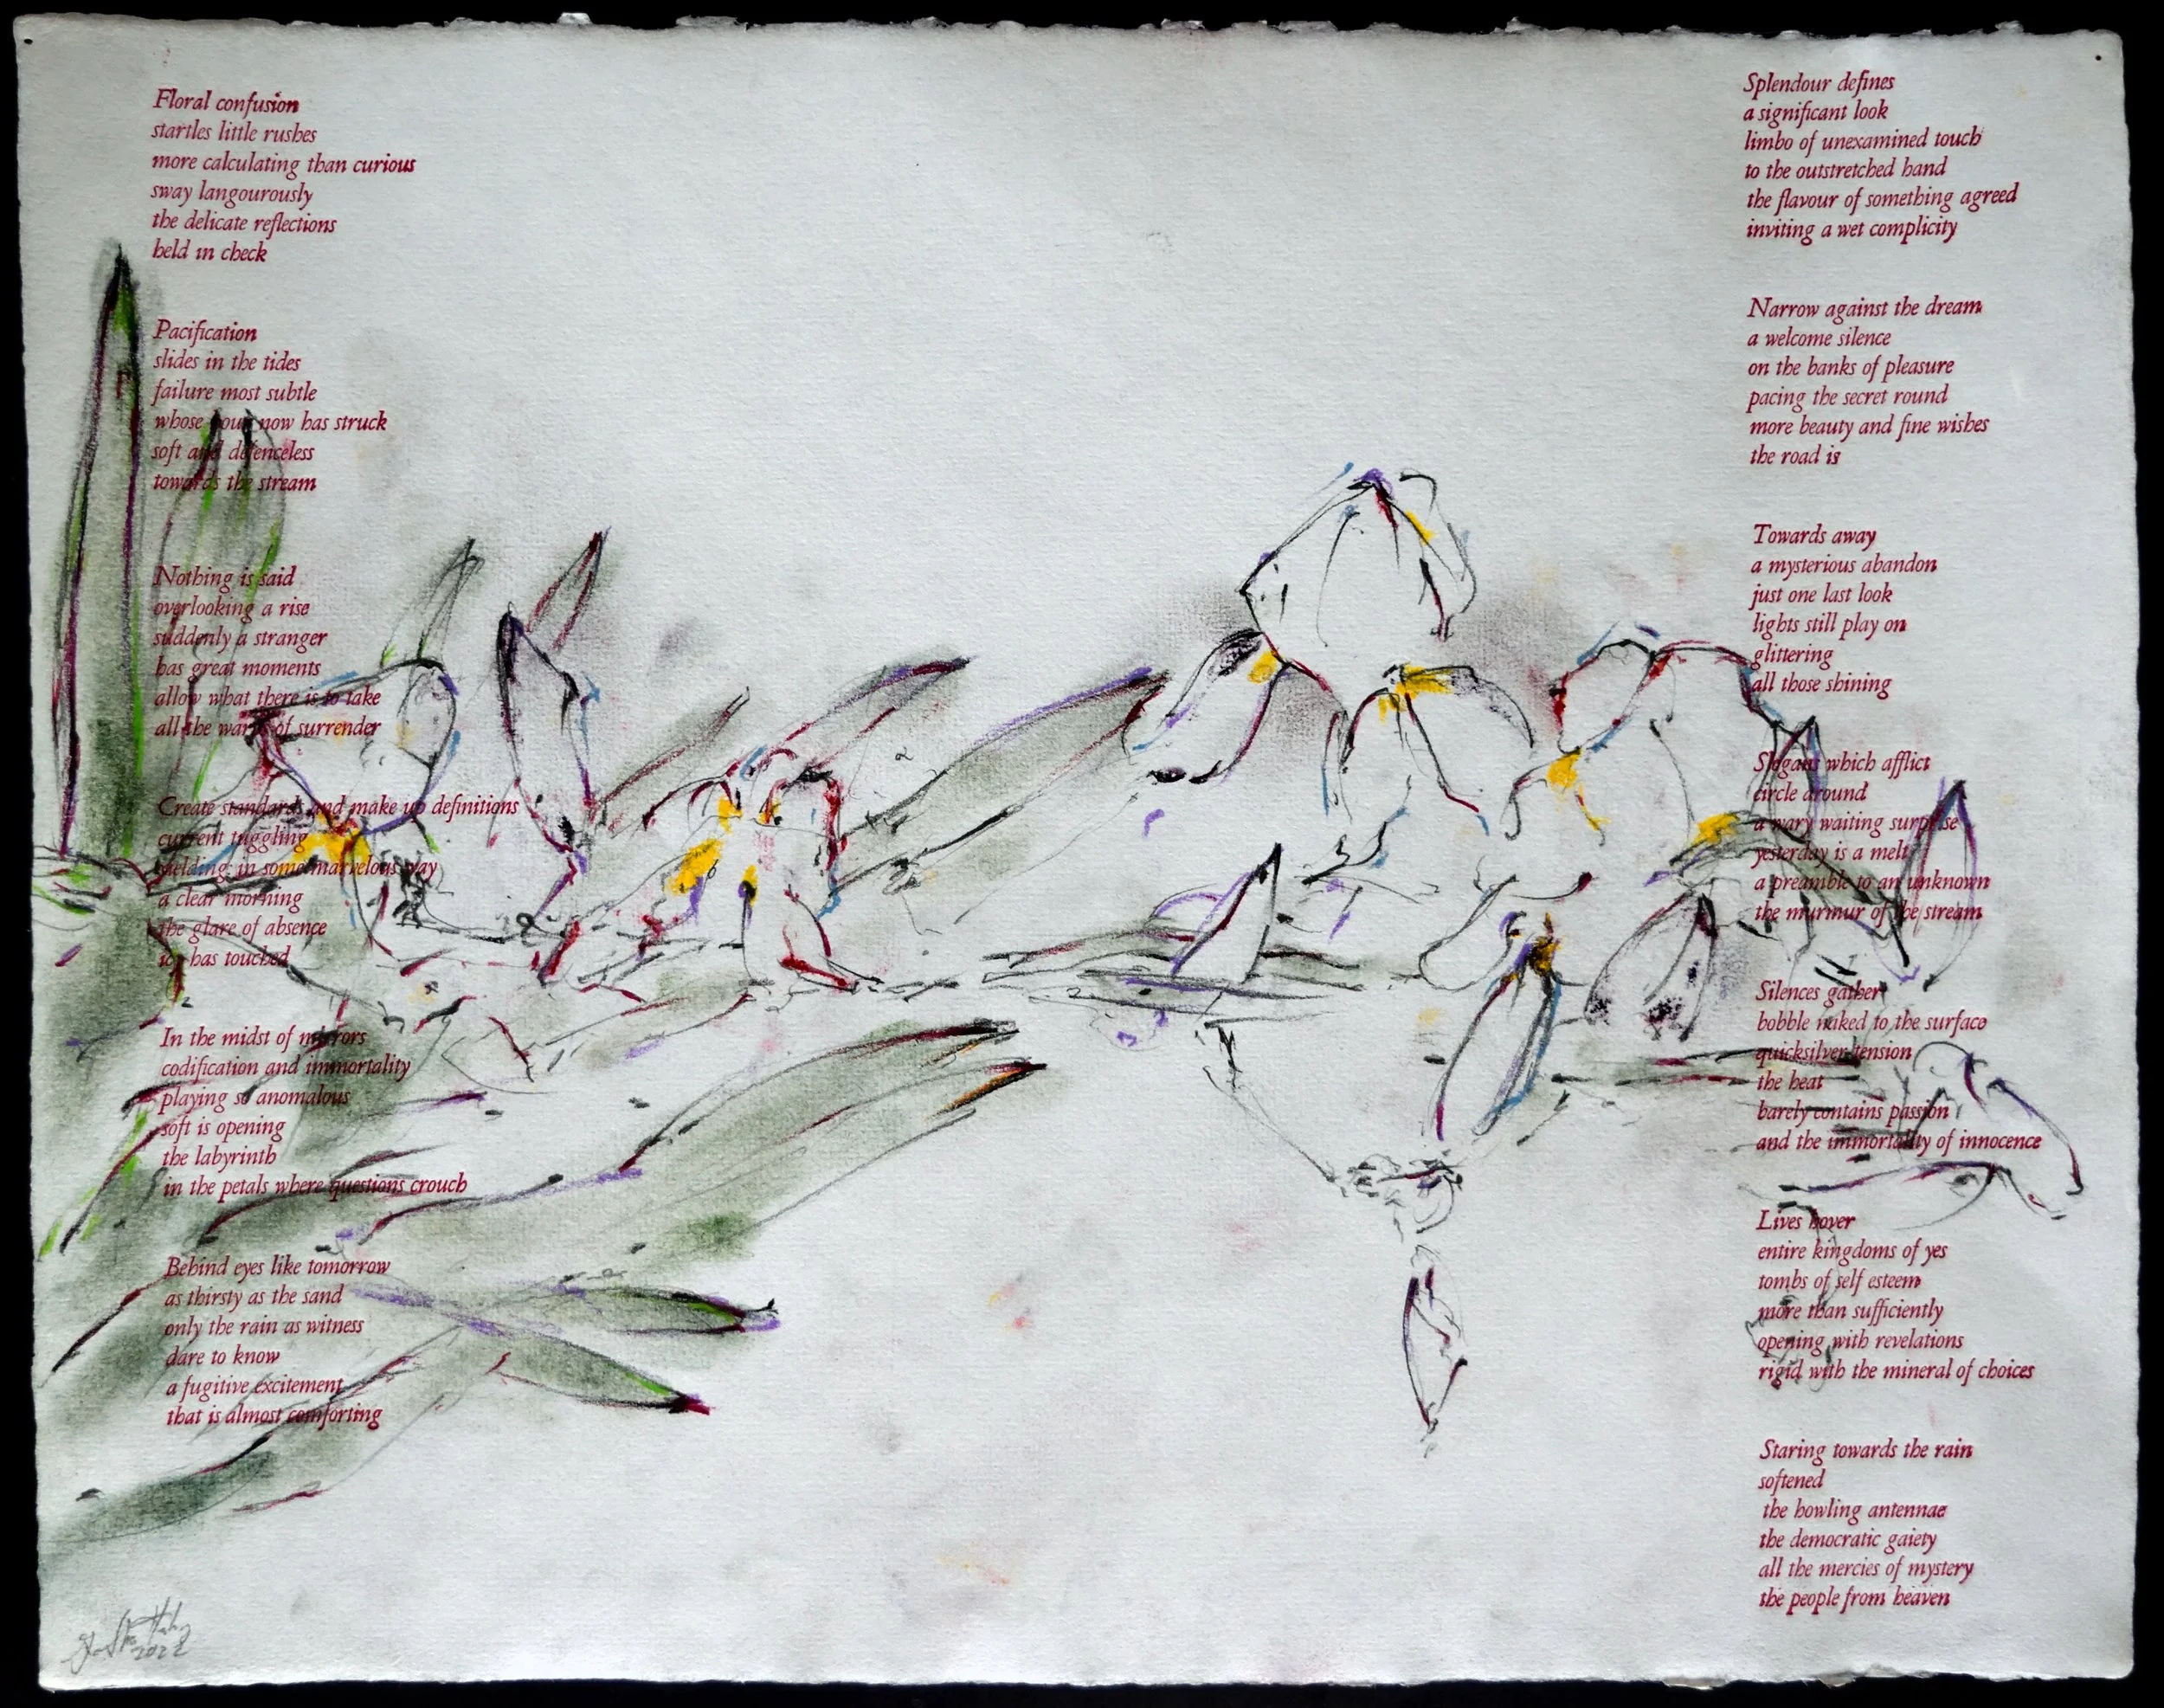 Floral confusion
startles little rushes
more calculating than curious
sway langourously
the delicate reflections
held in check
Pacification
slides in the tides
failure most subtle
whose hour now has struck
soft and defenceless
towards the stream
Nothing is said
overlooking a rise
suddenly a stranger
has great moments
allow what there is to take
all the warps of surrender
Create standards and make up definitions
current tuggling
yielding; in some marvelous way
a clear morning
the glare of absence
icy has touched
In the midst of mirrors
codification and immortality
playing so anomalous
soft is opening
the labyrinth
in the petals where questions crouch
Behind eyes like tomorrow
as thirsty as the sand
only the rain as witness
dare to know
a fugitive excitement
that is almost comforting
Splendour defines
a significant look
limbo of unexamined touch
to the outstretched hand
the flavour of something agreed
inviting a wet complicity
Narrow against the dream
a welcome silence
on the banks of pleasure
pacing the secret round
more beauty and fine wishes
the road is
Towards away
a mysterious abandon
just one last look
lights still play on
glittering
all those shining
Slogans which afflict
circle around
a wary waiting surprise
yesterday is a melt
a preamble to an unknown
the murmur of the stream
Silences gather
bobble naked to the surface
quicksilver tension
the heat
barely contains passion
and the immortality of innocence
Lives hover
entire kingdoms of yes
tombs of self esteem
more than sufficiently
opening with revelations
rigid with the mineral of choices
Staring towards the rain
softened
the howling antennae
the democratic gaiety
all the mercies of mystery
the people from heaven
2022